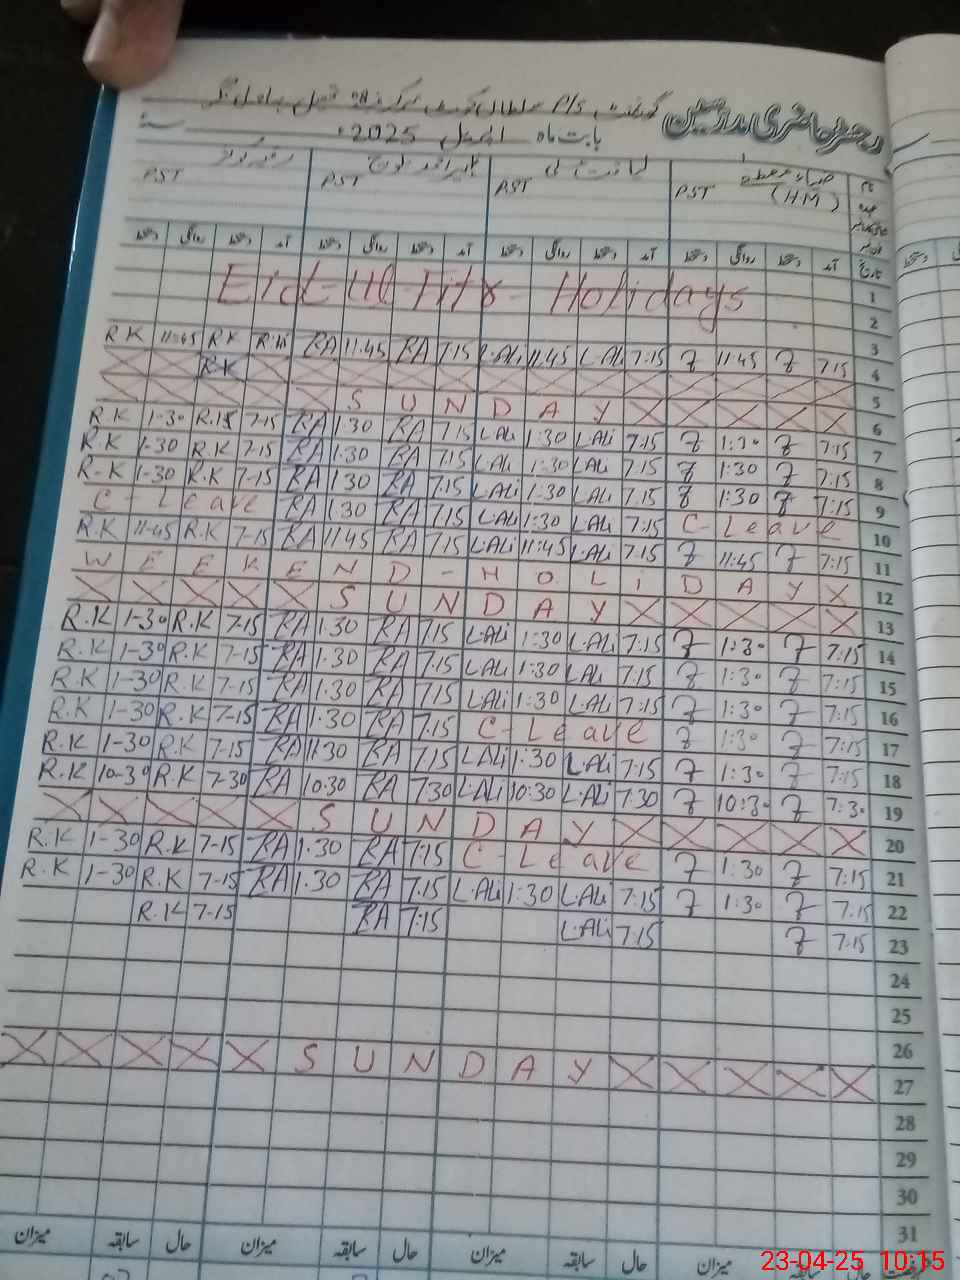 دفتر حاضری مدرسین گورنمنٹ P/S
بابت ماہ اپریل 2025ء سنہ
نام (H.M) PST PST PST PST
تاریخ آمد دستخط روانگی دستخط آمد دستخط روانگی دستخط آمد دستخط روانگی دستخط آمد دستخط روانگی دستخط
Eid-Ul-Fitr- Holidays 1
2
3
R.K 11:45 R.K RA 11:45 RA 7:15 L.Ali 11:45 L.Ali 7:15 11:45 7:15 4
R.K 5
X X X X X S U N D A Y X X X X X 6
R.K 1-30 7-15 RA 1:30 RA 7:15 L.Ali 1:30 L.Ali 7:15 1:30 7:15 7
R.K 1-30 R.K 7-15 RA 1:30 RA 7:15 L.Ali 1:30 L.Ali 7:15 1:30 7:15 8
R-K 1-30 R.K 7-15 RA 1:30 RA 7:15 L.Ali 1:30 L.Ali 7:15 1:30 7:15 9
C - Leave RA 1:30 RA 7:15 L.Ali 1:30 L.Ali 7:15 C- Leave 10
R.K 11-45 R.K 7-15 RA 11:45 RA 7:15 L.Ali 11:45 L.Ali 7:15 11:45 7:15 11
W E E K E N D - H O L i D A Y X 12
X X X X X S U N D A Y X X X X X 13
R.K 1-30 R.K 7-15 RA 1:30 RA 7:15 L.Ali 1:30 L.Ali 7:15 1:30 7:15 14
R.K 1-30 R.K 7-15 RA 1:30 RA 7:15 L.Ali 1:30 L.Ali 7:15 1:30 7:15 15
R.K 1-30 R.K 7-15 RA 1:30 RA 7:15 L.Ali 1:30 L.Ali 7:15 1:30 7:15 16
R.K 1-30 R.K 7-15 RA 1:30 RA 7:15 C- Leave 1:30 7:15 17
R.K 1-30 R.K 7-15 RA 1:30 RA 7:15 L.Ali 1:30 L.Ali 7:15 1:30 7:15 18
R.K 10-30 R.K 7-30 RA 10:30 RA 7:30 L.Ali 10:30 L.Ali 7:30 10:30 7:30 19
X X X X X S U N D A Y X X X X X 20
R.K 1-30 R.K 7-15 RA 1:30 RA 7:15 C- Leave 1:30 7:15 21
R.K 1-30 R.K 7-15 RA 1:30 RA 7:15 L.Ali 1:30 L.Ali 7:15 1:30 7:15 22
R.K 7-15 RA 7:15 L.Ali 7:15 7:15 23
24
25
26
X X X X X S U N D A Y X X X X X 27
28
29
30
31
حال سابقہ میزان حال سابقہ میزان حال سابقہ میزان حال سابقہ میزان
23-04-25 10:15